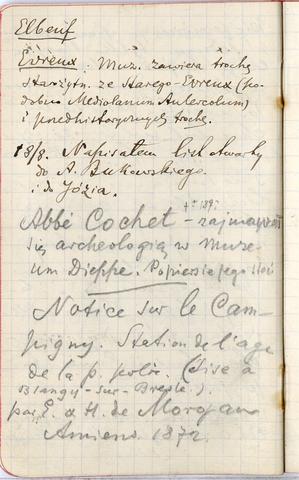 Elbeuf
Evreux: Muz. zawiera trochę
starożytn. ze Starego-Evreux (po-
dobno Mediolanum Aulercolum)
i przedhistorycznych trochę.
18/8. Napisałem list otwarty
do A. Bukowskiego.
i do Józia.
Abbé Cochet - zajmował
się archeologią w muze-
um Dieppe. Popiersie jego stoi
Notice sur le Cam-
pigny. Station de l'age
de la p. polie. (Sise à
Blangy-sur-Bresle.).
par E. & H. de Morgan
Amiens. 1872.